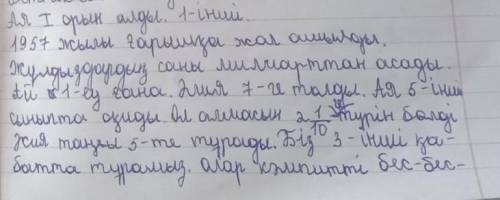 Ая I орын алды. 1-інші.
1957 жылы ғарышқа жол ашылды.
Жұлдыздардың саны миллиарттан асады.
Ай 1-еу ғана. Жия 7-ге толды. Ая 5-інші
сыныпта оқиды. Ол алмасын 2 1/10 түрін бөлді
Жия таңғы 5-те тұрады. Біз 3-інші қа-
батта тұрамыз. Олар кәмпитті бес-бес-